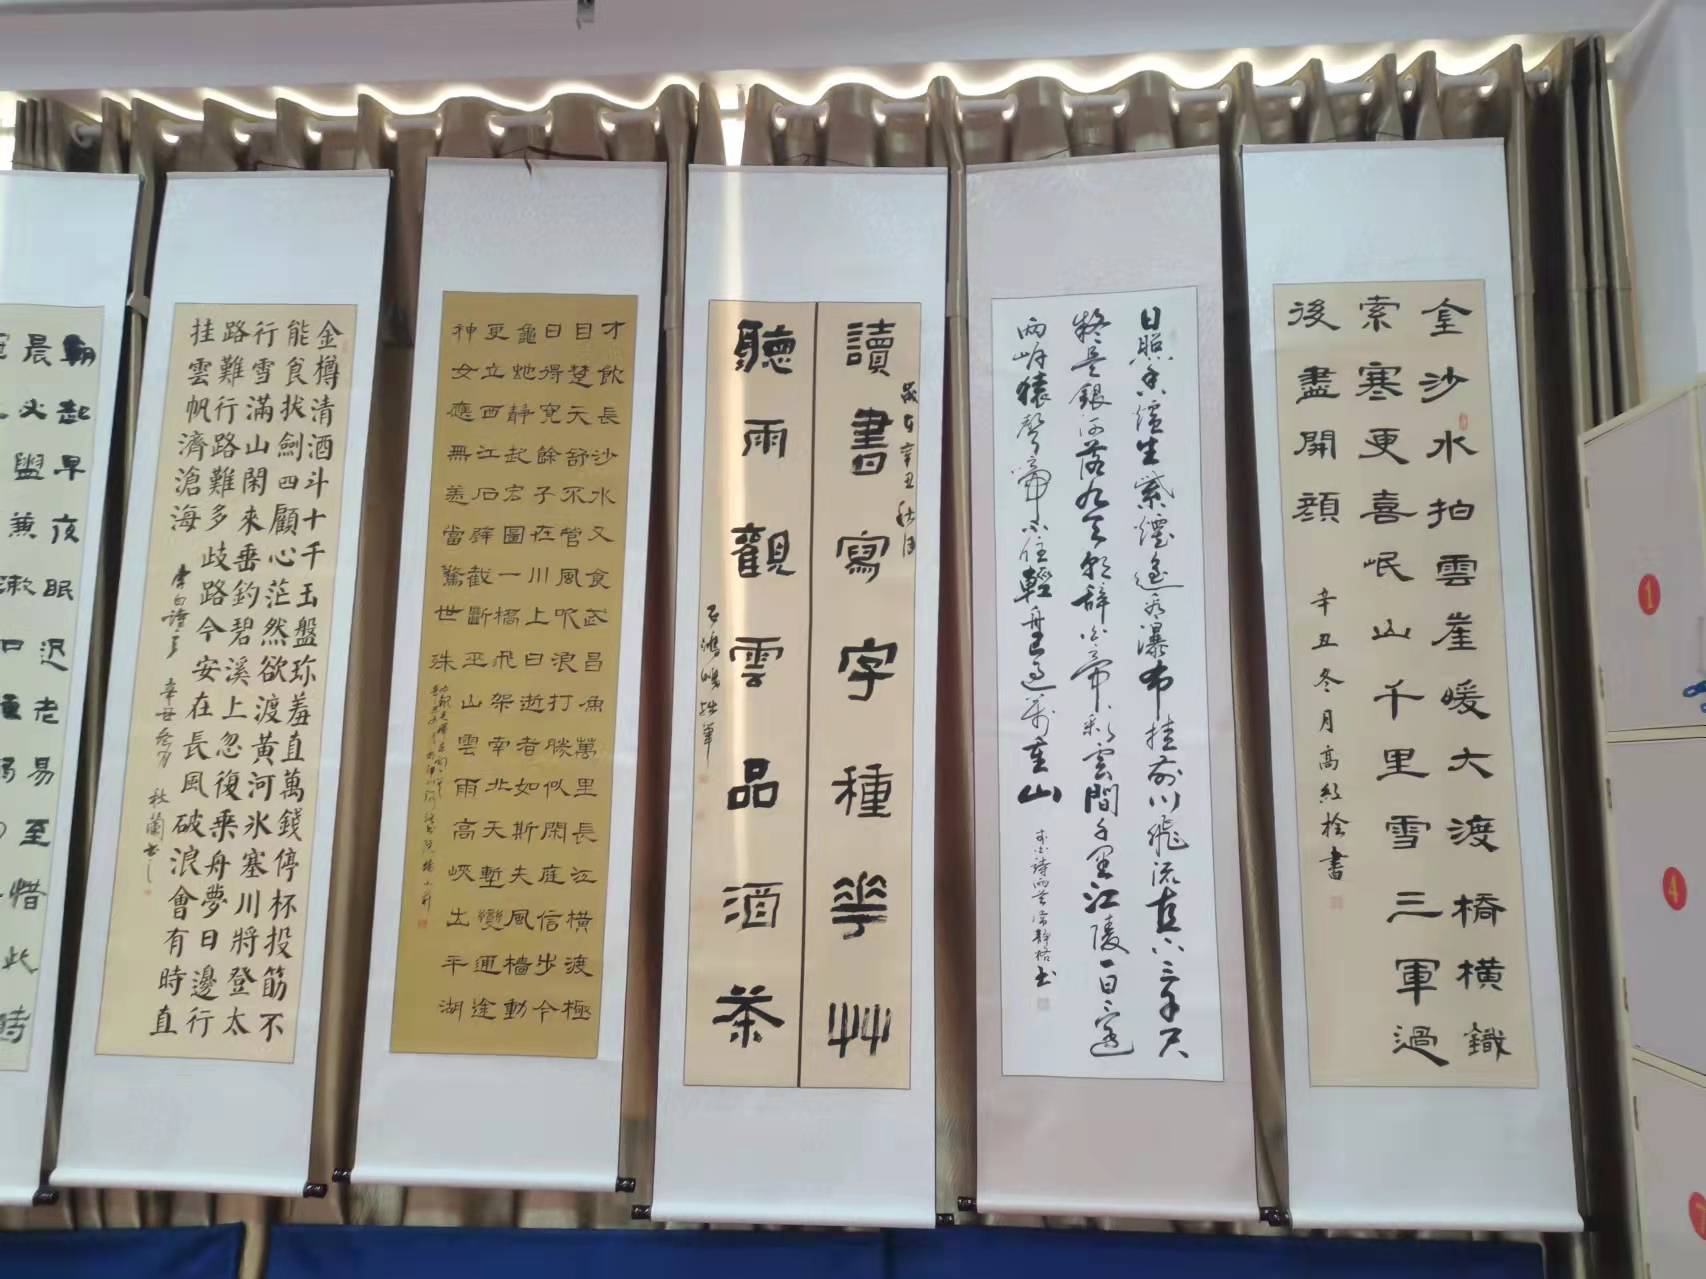 金沙水拍雲崖暖大渡橋橫鐵
索寒更喜岷山千里雪三軍過
後盡開顔
辛丑冬月高红拴書
日照香爐生紫煙遥看瀑布挂前川飛流直下三千尺
疑是銀河落九天朝辞白帝彩雲間千里江陵一日還
两岸猿聲啼不住輕舟已過萬重山
李白詩两首
書
讀書寫字種華艸
歲在辛丑秋月
聽雨觀雲品酒茶
才飲長沙水又食武昌魚萬里長江橫渡極
目楚天舒不管風吹浪打勝似閑庭信步今
日得寬餘子在川上曰逝者如斯夫風檣動
龜虵静起宏圖一橋飛架南北天塹變通途
更立西江石壁截斷巫山雲雨高峽出平湖
神女應無恙當驚世珠
金樽清酒斗十千玉盤珍羞直萬錢停杯投筯不
能食拔劍四顧心茫然欲渡黄河氷塞川將登太
行雪滿山閑來垂釣碧溪上忽復乘舟夢日邊行
路難行路難多歧路今安在長風破浪會有時直
挂雲帆濟滄海
李白詩
秋蘭書
朝起早夜眠迟老易至惜此時
晨必盥兼漱口
1
4
7